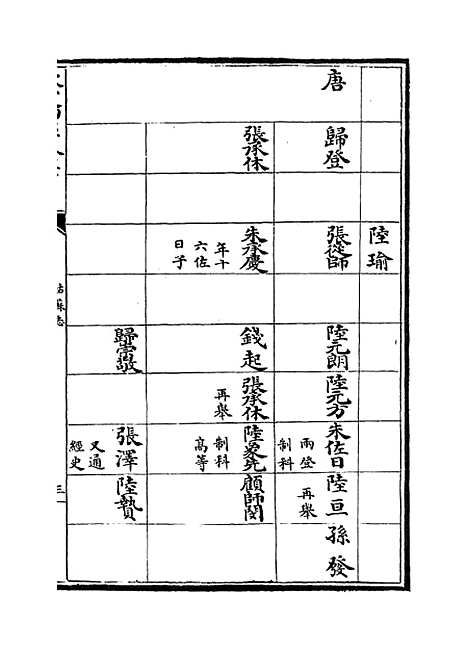 陸瑜
唐 歸登 張從師 陸元朗 陸元方 朱佐日 兩登制科 陸亘 再舉 孫發
張承休 朱承慶 年十六佐日子 錢起 張承休 再舉 陸象先 制科高等 顧師閔
歸崇敬 張澤 又通經史 陸贄
姑蘇志 三